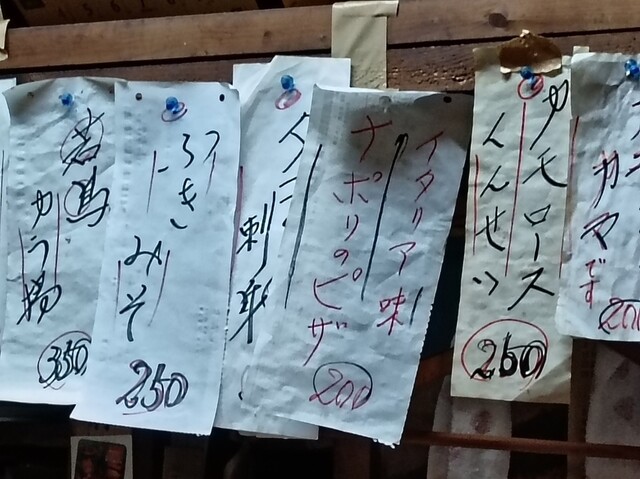 カマです
200
カモロース
くんせい
250
イタリア味
ナポリのピザ
200
刺身
みそ
250
若鳥
から揚
350